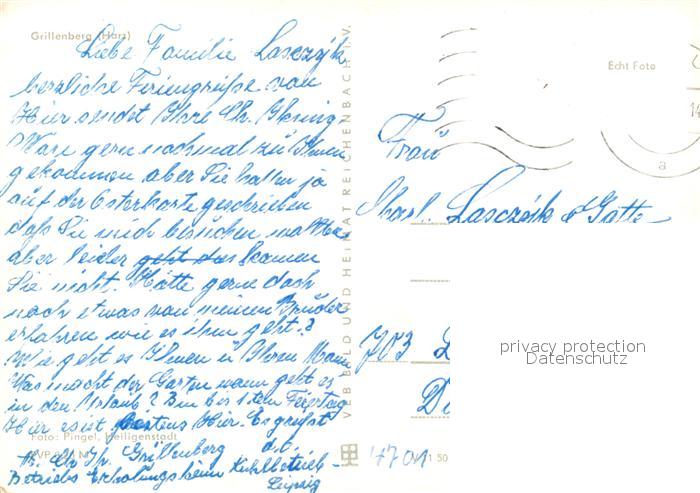 Grillenberg (Harz)
Liebe Familie Lasczÿk
herzliche Feriengrüße von
Hier sendet Ihre Ch.
Wäre gern nochmal zu Ihnen
gekommen aber Sie hatten ja
auf der Osterkarte geschrieben
daß Sie mich besuchen wollten
aber leider geht das kommen
Sie nicht. Hätte gerne doch
noch etwas von meinen Brüder
erfahren wie es ihm geht?
Wie geht es Ihnen u Ihren Mann
Was macht der Garten wann geht es
in den Urlaub? Bin bis
Hier es ist bestens Hier. Es grüßt
Foto: Pingel, Heiligenstadt
Grillenberg d.
Betriebs Erholungsheim Kühlbetrieb-
Leipzig
VEB BILD UND HEIMAT REICHENBACH i. V.
Echt Foto
14
a
Frau
Charl. Lasczÿk u Gatte
703 L
D
4701
1 50
privacy protection
Datenschutz